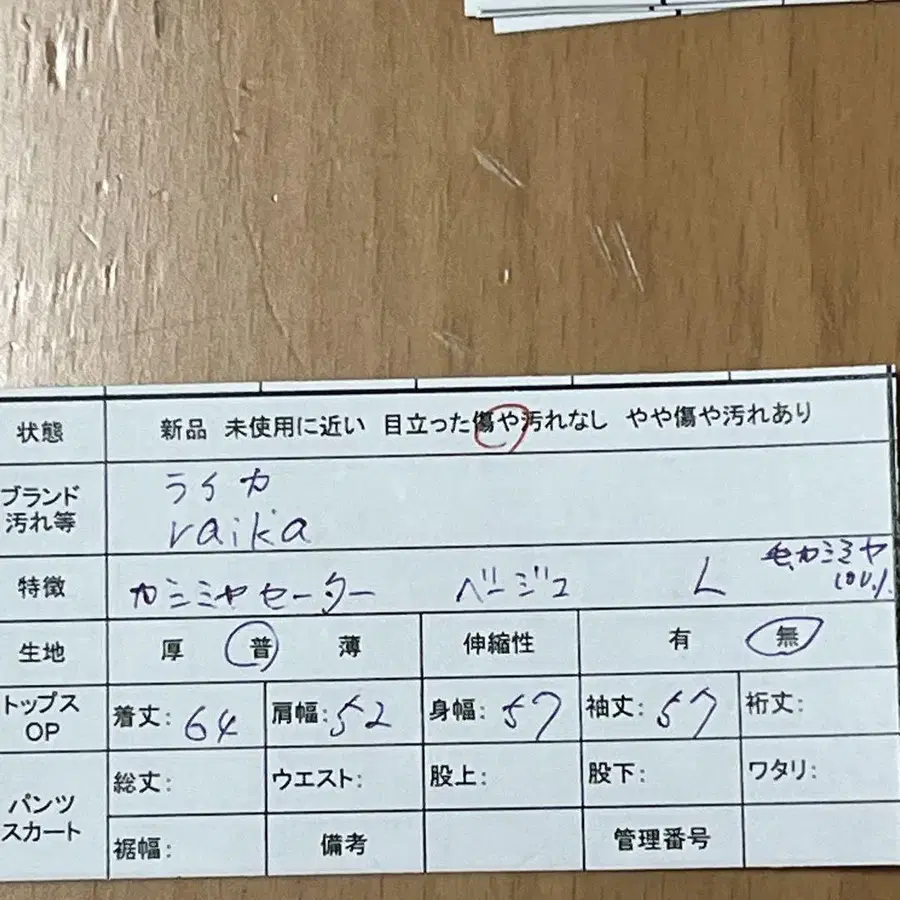 状態 新品 未使用に近い 目立った傷や汚れなし やや傷や汚れあり
ブランド 汚れ等 ライカ
raika
特徴 カシミヤセーター ベージュ L 毛カシミヤ
100%
生地 厚 普 薄 伸縮性 有 無
トップス OP 着丈: 64 肩幅: 52 身幅: 57 袖丈: 57 裄丈:
パンツ スカート 総丈: ウエスト: 股上: 股下: ワタリ:
裾幅: 備考 管理番号